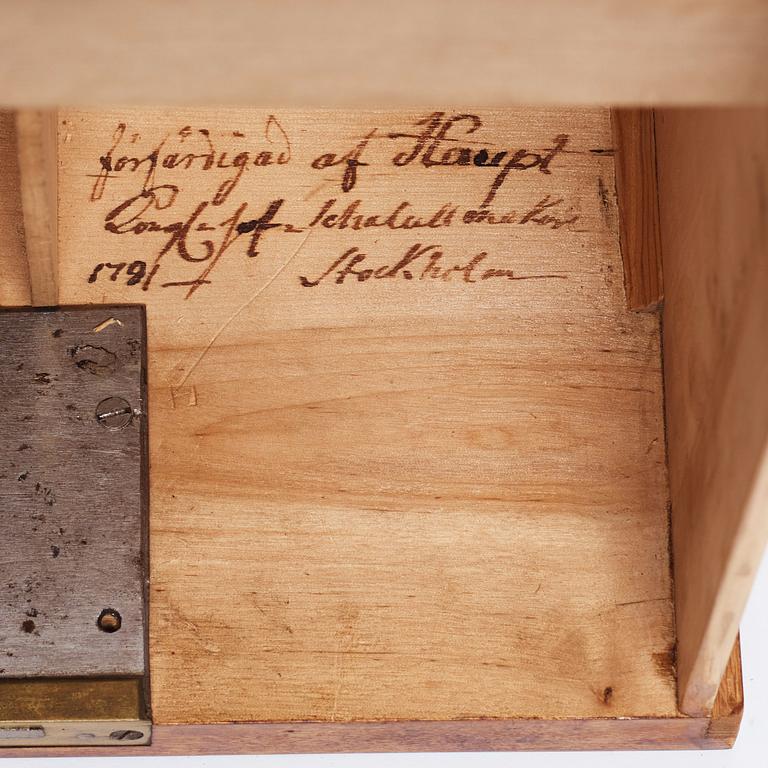 förfärdigad af Haupt
Kongl. hof-Schatull makare
1781 Stockholm